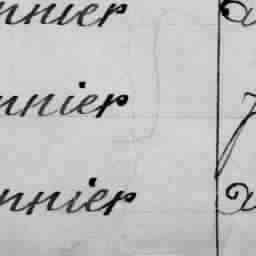 nnier
nnier
nnier